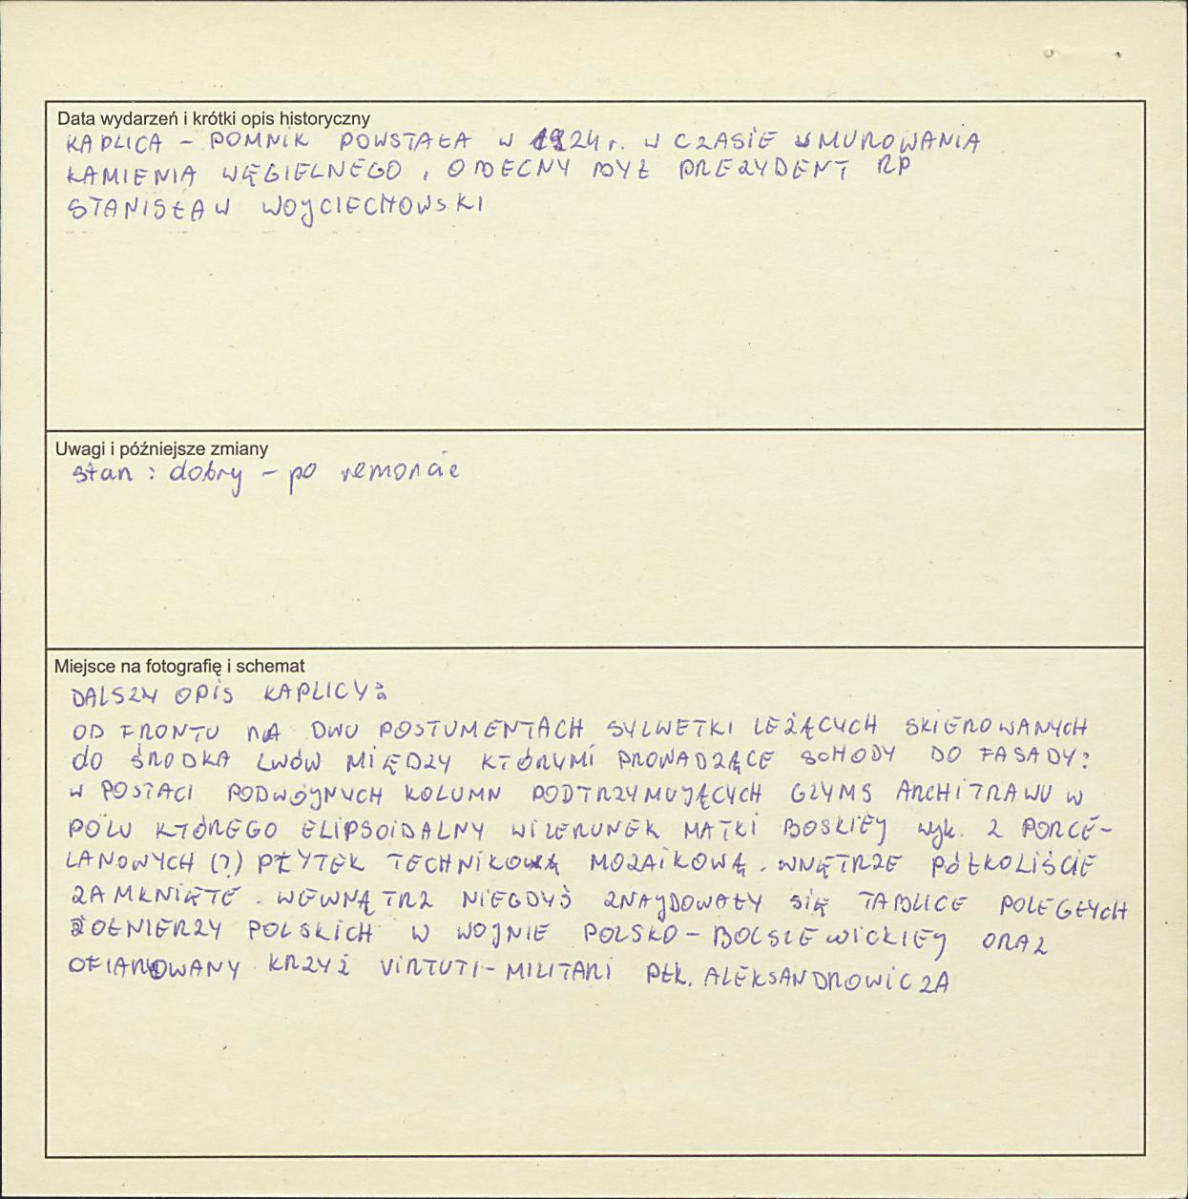 Data wydarzeń i krótki opis historyczny
KAPLICA – POMNIK POWSTAŁA W 1924 r. W CZASIE WMUROWANIA
KAMIENIA WĘGIELNEGO, OBECNY BYŁ PREZYDENT RP
STANISŁAW WOJCIECHOWSKI
Uwagi i późniejsze zmiany
stan : dobry – po remoncie
Miejsce na fotografię i schemat
DALSZY OPIS KAPLICY:
OD FRONTU NA DWU POSTUMENTACH SYLWETKI LEŻĄCYCH SKIEROWANYCH
do ŚRODKA LWÓW MIĘDZY KTÓRYMI PROWADZĄCE SCHODY DO FASADY:
W POSTACI PODWÓJNYCH KOLUMN PODTRZYMUJĄCYCH GZYMS ARCHITRAWU W
POLU KTÓREGO ELIPSOIDALNY WIZERUNEK MATKI BOSKIEJ wyk. Z PORCE-
LANOWYCH (?) PŁYTEK TECHNIKOWĄ MOZAIKOWĄ. WNĘTRZE PÓŁKOLIŚCIE
ZAMKNIĘTE. WEWNĄTRZ NIEGDYŚ ZNAJDOWAŁY SIĘ TABLICE POLEGŁYCH
ŻOŁNIERZY POLSKICH W WOJNIE POLSKO – BOLSZEWICKIEJ ORAZ
OFIAROWANY KRZYŻ VIRTUTI – MILITARI PŁK. ALEKSANDROWICZA